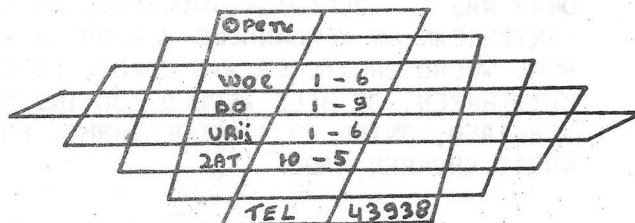 OPEN
WOE 1-6
DO 1-9
VRIJ 1-6
ZAT 10-5
TEL 43938